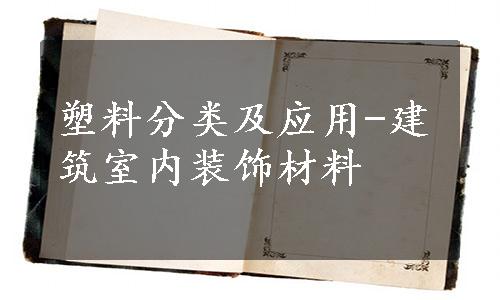 塑料分类及应用-建
筑室内装饰材料